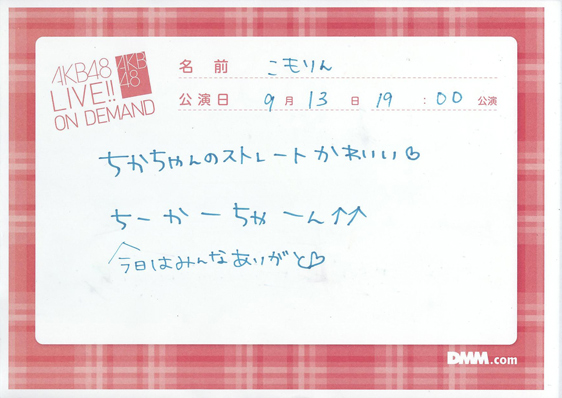 AKB48
LIVE!!
ON DEMAND
AKB
48
名 前 こもりん
公演日 9月 13日 19:00 公演
ちかちゃんのストレートかわいい♡
ちーかーちゃーん↑↑
今日はみんなありがと♡
DMM.com